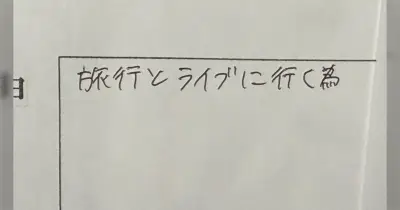 旅行とライブに行く為